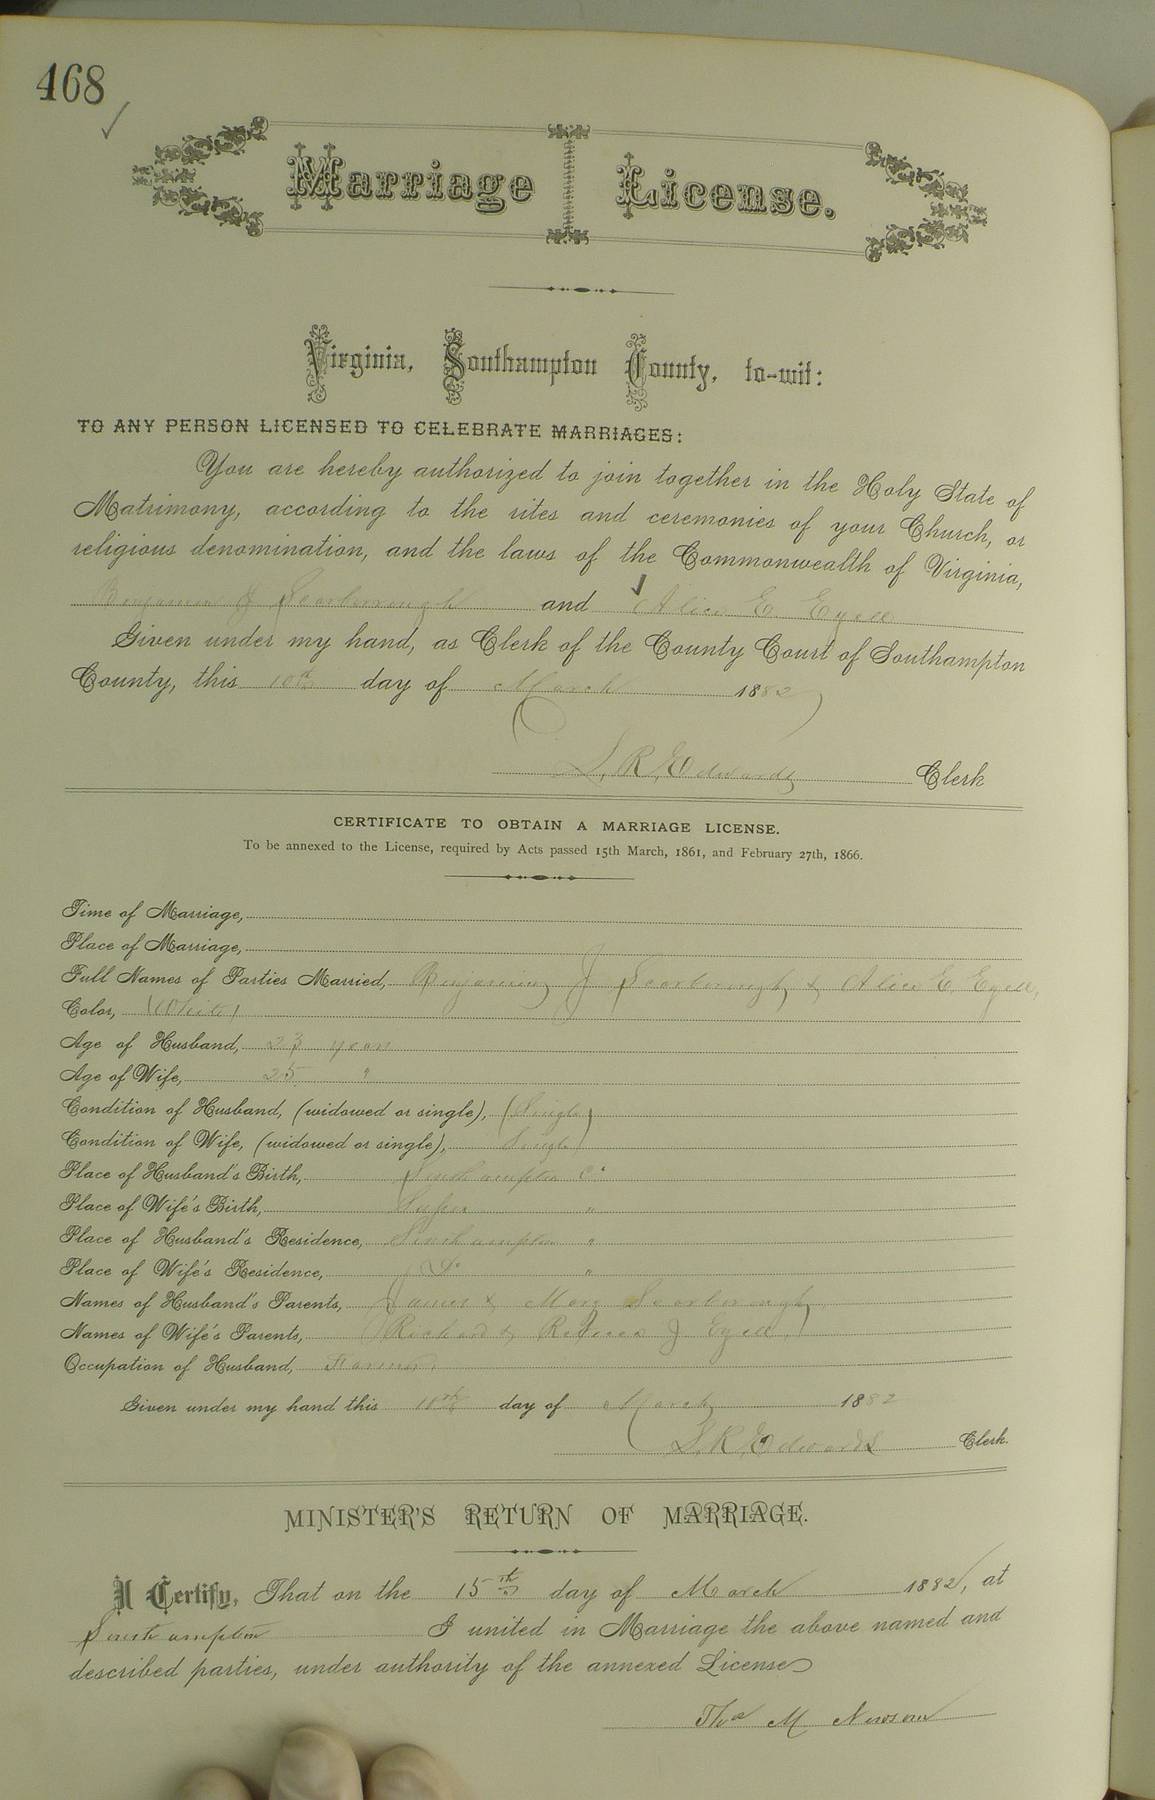 468
Marriage License.
Virginia, Southampton County, to-wit:
TO ANY PERSON LICENSED TO CELEBRATE MARRIAGES:
You are hereby authorized to join together in the Holy State of
Matrimony, according to the rites and ceremonies of your Church, or
religious denomination, and the laws of the Commonwealth of Virginia,
Benjamin J Scarborough and Alice E. Ezell
Given under my hand, as Clerk of the County Court of Southampton
County, this 10th day of March 1882
L. R. Edwards Clerk
CERTIFICATE TO OBTAIN A MARRIAGE LICENSE.
To be annexed to the License, required by Acts passed 15th March, 1861, and February 27th, 1866.
Time of Marriage,
Place of Marriage,
Full Names of Parties Married, Benjamin J Scarborough & Alice E. Ezell,
Color, (White)
Age of Husband, 23 years
Age of Wife, 25 "
Condition of Husband, (widowed or single), (Single)
Condition of Wife, (widowed or single), Single
Place of Husband's Birth, Southampton Co
Place of Wife's Birth, Sussex "
Place of Husband's Residence, Southampton "
Place of Wife's Residence, Do "
Names of Husband's Parents, James & Mary Scarborough
Names of Wife's Parents, Richard & Rebecca J Ezell
Occupation of Husband, Farmer
Given under my hand this 10th day of March 1882
L. R. Edwards Clerk.
MINISTER'S RETURN OF MARRIAGE.
I Certify, That on the 15th day of March 1882, at
Southampton I united in Marriage the above named and
described parties, under authority of the annexed License
Thos M Newsom